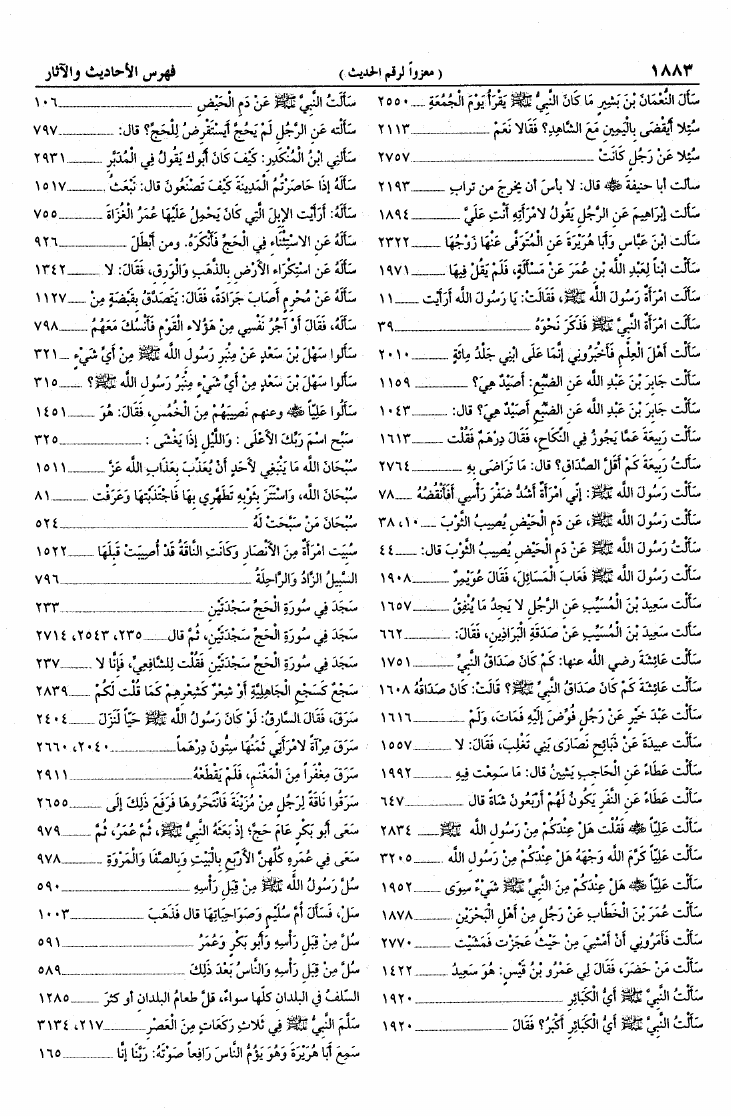 ١٨٨٣
( معزواً لرقم الحديث )
فهرس الأحاديث والآثار
سَأَلَ النُّعْمَانَ بْنَ بَشِيرٍ مَا كَانَ النَّبِيُّ ﷺ يَقْرَأُ يَوْمَ الْجُمُعَةِ ٢٥٥٠
سُئِلا أَيُقْضَى بِالْيَمِينِ مَعَ الشَّاهِدِ؟ فَقَالَا نَعَمْ ٢١١٣
سُئِلا عَنْ رَجُلٍ كَانَتْ ٢٧٥٧
سألت أبا حنيفة ﷺ قال: لا بأس أن يخرج من تراب ٢١٩٣
سَأَلْتُ إِبْرَاهِيمَ عَنِ الرَّجُلِ يَقُولُ لامْرَأَتِهِ أَنْتِ عَلَيَّ ١٨٩٤
سَأَلْتُ ابْنَ عَبَّاسٍ وَأَبَا هُرَيْرَةَ عَنِ الْمُتَوَفَّى عَنْهَا زَوْجُهَا ٢٣٢٢
سَأَلَتْ ابْناً لِعَبْدِ اللَّهِ بْنِ عُمَرَ عَنْ مَسْأَلَةٍ، فَلَمْ يَقُلْ فِيهَا ١٩٧١
سَأَلَتِ امْرَأَةٌ رَسُولَ اللَّهِ ﷺ، فَقَالَتْ: يَا رَسُولَ اللَّهِ أَرَأَيْتَ ١١
سَأَلَتِ امْرَأَةٌ النَّبِيَّ ﷺ فَذَكَرَ نَحْوَهُ ٣٩
سَأَلْتُ أَهْلَ الْعِلْمِ فَأَخْبَرُونِي إِنَّمَا عَلَى ابْنِي جَلْدُ مِائَةٍ ٢٠١٠
سَأَلْتُ جَابِرَ بْنَ عَبْدِ اللَّهِ عَنِ الضَّبُعِ: أَصَيْدٌ هِيَ؟ ١١٥٩
سَأَلْتُ جَابِرَ بْنَ عَبْدِ اللَّهِ عَنِ الضَّبُعِ أَصَيْدٌ هِيَ؟ قال: ١٠٤٣
سَأَلْتُ رَبِيعَةَ عَمَّا يَجُوزُ فِي النِّكَاحِ، فَقَالَ دِرْهَمٌ فَقُلْتُ ١٦١٣
سَأَلْتُ رَبِيعَةَ كَمْ أَقَلُّ الصَّدَاقِ؟ قال: مَا تَرَاضَى بِهِ ٢٧٦٤
سَأَلْتُ رَسُولَ اللَّهِ ﷺ: إِنِّي امْرَأَةٌ أَشُدُّ ضَفْرَ رَأْسِي أَفَأَنْقُضُهُ ٧٨
سَأَلْتُ رَسُولَ اللَّهِ ﷺ، عَنْ دَمِ الْحَيْضِ يُصِيبُ الثَّوْبَ ١٠، ٣٨
سَأَلْتُ رَسُولَ اللَّهِ ﷺ عَنْ دَمِ الْحَيْضِ يُصِيبُ الثَّوْبَ قال: ٤٤
سَأَلْتُ رَسُولَ اللَّهِ ﷺ فَعَابَ الْمَسَائِلَ، فَقَالَ عُوَيْمِرٌ ١٩٠٨
سَأَلْتُ سَعِيدَ بْنَ الْمُسَيَّبِ عَنِ الرَّجُلِ لَا يَجِدُ مَا يُنْفِقُ ١٦٥٧
سَأَلْتُ سَعِيدَ بْنَ الْمُسَيَّبِ عَنْ صَدَقَةِ الْبَرَاذِينِ، فَقَالَ: ٦٦٢
سَأَلْتُ عَائِشَةَ رضي الله عنها: كَمْ كَانَ صَدَاقُ النَّبِيِّ ١٧٥١
سَأَلْتُ عَائِشَةَ كَمْ كَانَ صَدَاقُ النَّبِيِّ ﷺ؟ قَالَتْ: كَانَ صَدَاقُهُ ١٦٠٨
سَأَلْتُ عَبْدَ خَيْرٍ عَنْ رَجُلٍ فُوِّضَ إِلَيْهِ فَمَاتَ، وَلَمْ ١٦١٦
سَأَلْتُ عبيدةَ عَنْ ذَبَائِحِ نَصَارَى بَنِي تَغْلِبَ، فَقَالَ: لا ١٥٥٧
سَأَلْتُ عَطَاءً عَنِ الْحَاجِبِ يَشِينُ قال: مَا سَمِعْتُ فِيهِ ١٩٩٢
سَأَلْتُ عَطَاءً عَنِ النَّفَرِ يَكُونُ لَهُمْ أَرْبَعُونَ شَاةً قال ٦٤٧
سَأَلْتُ عَلِيّاً فَقُلْتُ هَلْ عِنْدَكُمْ مِنْ رَسُولِ اللَّهِ ﷺ ٢٨٣٤
سَأَلْتُ عَلِيّاً كَرَّمَ اللَّهُ وَجْهَهُ هَلْ عِنْدَكُمْ مِنْ رَسُولِ اللَّهِ ٣٢٠٥
سَأَلْتُ عَلِيّاً هَلْ عِنْدَكُمْ مِنَ النَّبِيِّ ﷺ شَيْءٌ سِوَى ١٩٥٢
سَأَلْتُ عُمَرَ بْنَ الْخَطَّابِ عَنْ رَجُلٍ مِنْ أَهْلِ الْبَحْرَيْنِ ١٨٧٨
سَأَلْتُ فَأَمَرُونِي أَنْ أَمْشِيَ مِنْ حَيْثُ عَجَزْتُ فَمَشَيْتُ ٢٧٧٠
سَأَلْتُ مَنْ حَضَرَ، فَقَالَ لِي عَمْرُو بْنُ قَيْسٍ: هُوَ سَعِيدُ ١٤٢٢
سَأَلْتُ النَّبِيَّ ﷺ أَيُّ الْكَبَائِرِ ١٩٢٠
سَأَلْتُ النَّبِيَّ ﷺ أَيُّ الْكَبَائِرِ أَكْبَرُ؟ فَقَالَ ١٩٢٠
سَأَلْتُ النَّبِيَّ ﷺ عَنْ دَمِ الْحَيْضِ ١٠٦
سَأَلْتُه عَنِ الرَّجُلِ لَمْ يَحُجَّ أَيَسْتَقْرِضُ لِلْحَجِّ؟ قال: ٧٩٧
سَأَلَنِي ابْنُ الْمُنْكَدِرِ: كَيْفَ كَانَ أَبُوكَ يَقُولُ فِي الْمُدَبَّرِ ٢٩٣١
سَأَلَهُ إِذَا حَاصَرْتُمُ الْمَدِينَةَ كَيْفَ تَصْنَعُونَ قال: نَبْعَثُ ١٥١٧
سَأَلَهُ: أَرَأَيْتَ الإِبِلَ الَّتِي كَانَ يَحْمِلُ عَلَيْهَا عُمَرُ الْغُزَاةَ ٧٥٥
سَأَلَهُ عَنِ الاسْتِثْنَاءِ فِي الْحَجِّ فَأَنْكَرَهُ. ومن أبطلَ ٩٢٦
سَأَلَهُ عَنِ اسْتِكْرَاءِ الأَرْضِ بِالذَّهَبِ وَالْوَرِقِ، فَقَالَ: لا ١٣٤٢
سَأَلَهُ عَنْ مُحْرِمٍ أَصَابَ جَرَادَةً، فَقَالَ: يَتَصَدَّقُ بِقَبْضَةٍ مِنْ ١١٢٧
سَأَلَهُ، فَقَالَ أَوْ آجُرُ نَفْسِي مِنْ هَؤُلاءِ الْقَوْمِ فَأَنْسُكُ مَعَهُمُ ٧٩٨
سَأَلُوا سَهْلَ بْنَ سَعْدٍ عَنْ مِنْبَرِ رَسُولِ اللَّهِ ﷺ مِنْ أَيِّ شَيْءٍ ٣٢١
سَأَلُوا سَهْلَ بْنَ سَعْدٍ مِنْ أَيِّ شَيْءٍ مِنْبَرُ رَسُولِ اللَّهِ ﷺ؟ ٣١٥
سَأَلُوا عَلِيّاً وعنهم نَصِيبَهُمْ مِنَ الْخُمُسِ، فَقَالَ: هُوَ ١٤٥١
سَبِّحِ اسْمَ رَبِّكَ الأَعْلَى : وَاللَّيْلِ إِذَا يَغْشَى : ٣٢٥
سُبْحَانَ اللَّهِ مَا يَنْبَغِي لأَحَدٍ أَنْ يُعَذِّبَ بِعَذَابِ اللَّهِ عَزَّ ١٥١١
سُبْحَانَ اللَّهِ، وَاسْتَتَرَ بِثَوْبِهِ تَطَهَّرِي بِهَا فَاجْتَذَبْتُهَا وَعَرَفْتُ ٨١
سُبْحَانَ مَنْ سَبَّحْتَ لَهُ ٥٢٤
سُبِيَتِ امْرَأَةٌ مِنَ الأَنْصَارِ وَكَانَتِ النَّاقَةُ قَدْ أُصِيبَتْ قَبْلَهَا ١٥٢٢
السَّبِيلُ الزَّادُ وَالرَّاحِلَةُ ٧٩٦
سَجَدَ فِي سُورَةِ الْحَجِّ سَجْدَتَيْنِ ٢٣٣
سَجَدَ فِي سُورَةِ الْحَجِّ سَجْدَتَيْنِ، ثُمَّ قال ٢٣٥، ٢٥٤٣، ٢٧١٤
سَجَدَ فِي سُورَةِ الْحَجِّ سَجْدَتَيْنِ فَقُلْتُ لِلشَّافِعِيِّ، فَإِنَّا لا ٢٣٧
سَجْعٌ كَسَجْعِ الْجَاهِلِيَّةِ أَوْ شِعْرٌ كَشِعْرِهِمْ كَمَا قُلْتَ لَكُمْ ٢٨٣٩
سَرَقَ، فَقَالَ السَّارِقُ: لَوْ كَانَ رَسُولُ اللَّهِ ﷺ حَيّاً لَنَزَلَ ٢٤٠٤
سَرَقَ مِرْآةً لامْرَأَتِي ثَمَنُهَا سِتُّونَ دِرْهَماً ٢٠٤٠، ٢٦٦٠
سَرَقَ مِغْفَراً مِنَ الْمَغْنَمِ، فَلَمْ يَقْطَعْهُ ٢٩١١
سَرَقُوا نَاقَةً لِرَجُلٍ مِنْ مُزَيْنَةَ فَانْتَحَرُوهَا فَرَفَعَ ذَلِكَ إِلَى ٢٦٥٥
سَعَى أَبُو بَكْرٍ عَامَ حَجَّ؛ إِذْ بَعَثَهُ النَّبِيُّ ﷺ، ثُمَّ عُمَرُ، ثُمَّ ٩٧٩
سَعَى فِي عُمَرِهِ كُلِّهِنَّ الأَرْبَعِ بِالْبَيْتِ وَبِالصَّفَا وَالْمَرْوَةِ ٩٧٨
سُلَّ رَسُولُ اللَّهِ ﷺ مِنْ قِبَلِ رَأْسِهِ ٥٩٠
سَلْ، فَسَأَلَ أُمَّ سُلَيْمٍ وَصَوَاحِبَاتِهَا قال فَذَهَبَ ١٠٠٣
سُلَّ مِنْ قِبَلِ رَأْسِهِ وَأَبُو بَكْرٍ وَعُمَرُ ٥٩١
سُلَّ مِنْ قِبَلِ رَأْسِهِ وَالنَّاسُ بَعْدَ ذَلِكَ ٥٨٩
السَّلَفُ في البلدانِ كلِّها سواءٌ، قلَّ طعامُ البلدانِ أو كثرَ ١٢٨٥
سَلَّمَ النَّبِيُّ ﷺ فِي ثَلاثِ رَكَعَاتٍ مِنَ الْعَصْرِ ٢١٧، ٣١٣٤
سَمِعَ أَبَا هُرَيْرَةَ وَهُوَ يَؤُمُّ النَّاسَ رَافِعاً صَوْتَهُ: رَبَّنَا إِنَّا ١٦٥